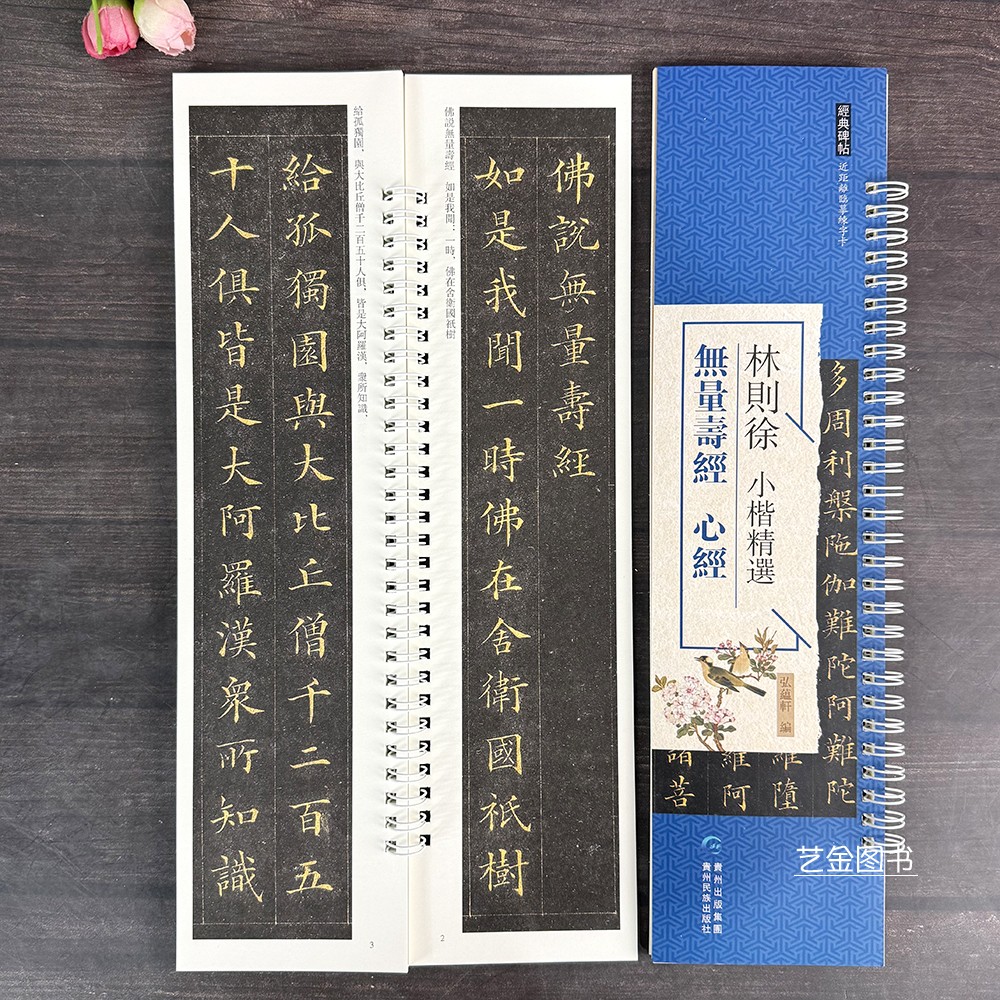 佛說無量壽經
如是我聞一時佛在舍衛國祇樹
佛說無量壽經 如是我聞：一時，佛在舍衛國祇樹
2
給孤獨園與大比丘僧千二百五
十人俱皆是大阿羅漢眾所知識
給孤獨園，與大比丘僧千二百五十人俱，皆是大阿羅漢，衆所知識，
3
經典碑帖
近距離臨摹練字卡
林則徐 小楷精選
無量壽經 心經
弘蘊軒 編
多周利槃陁伽難陀阿難陀
羅墮
羅阿
諸菩
貴州出版集團
貴州民族出版社
艺金图书